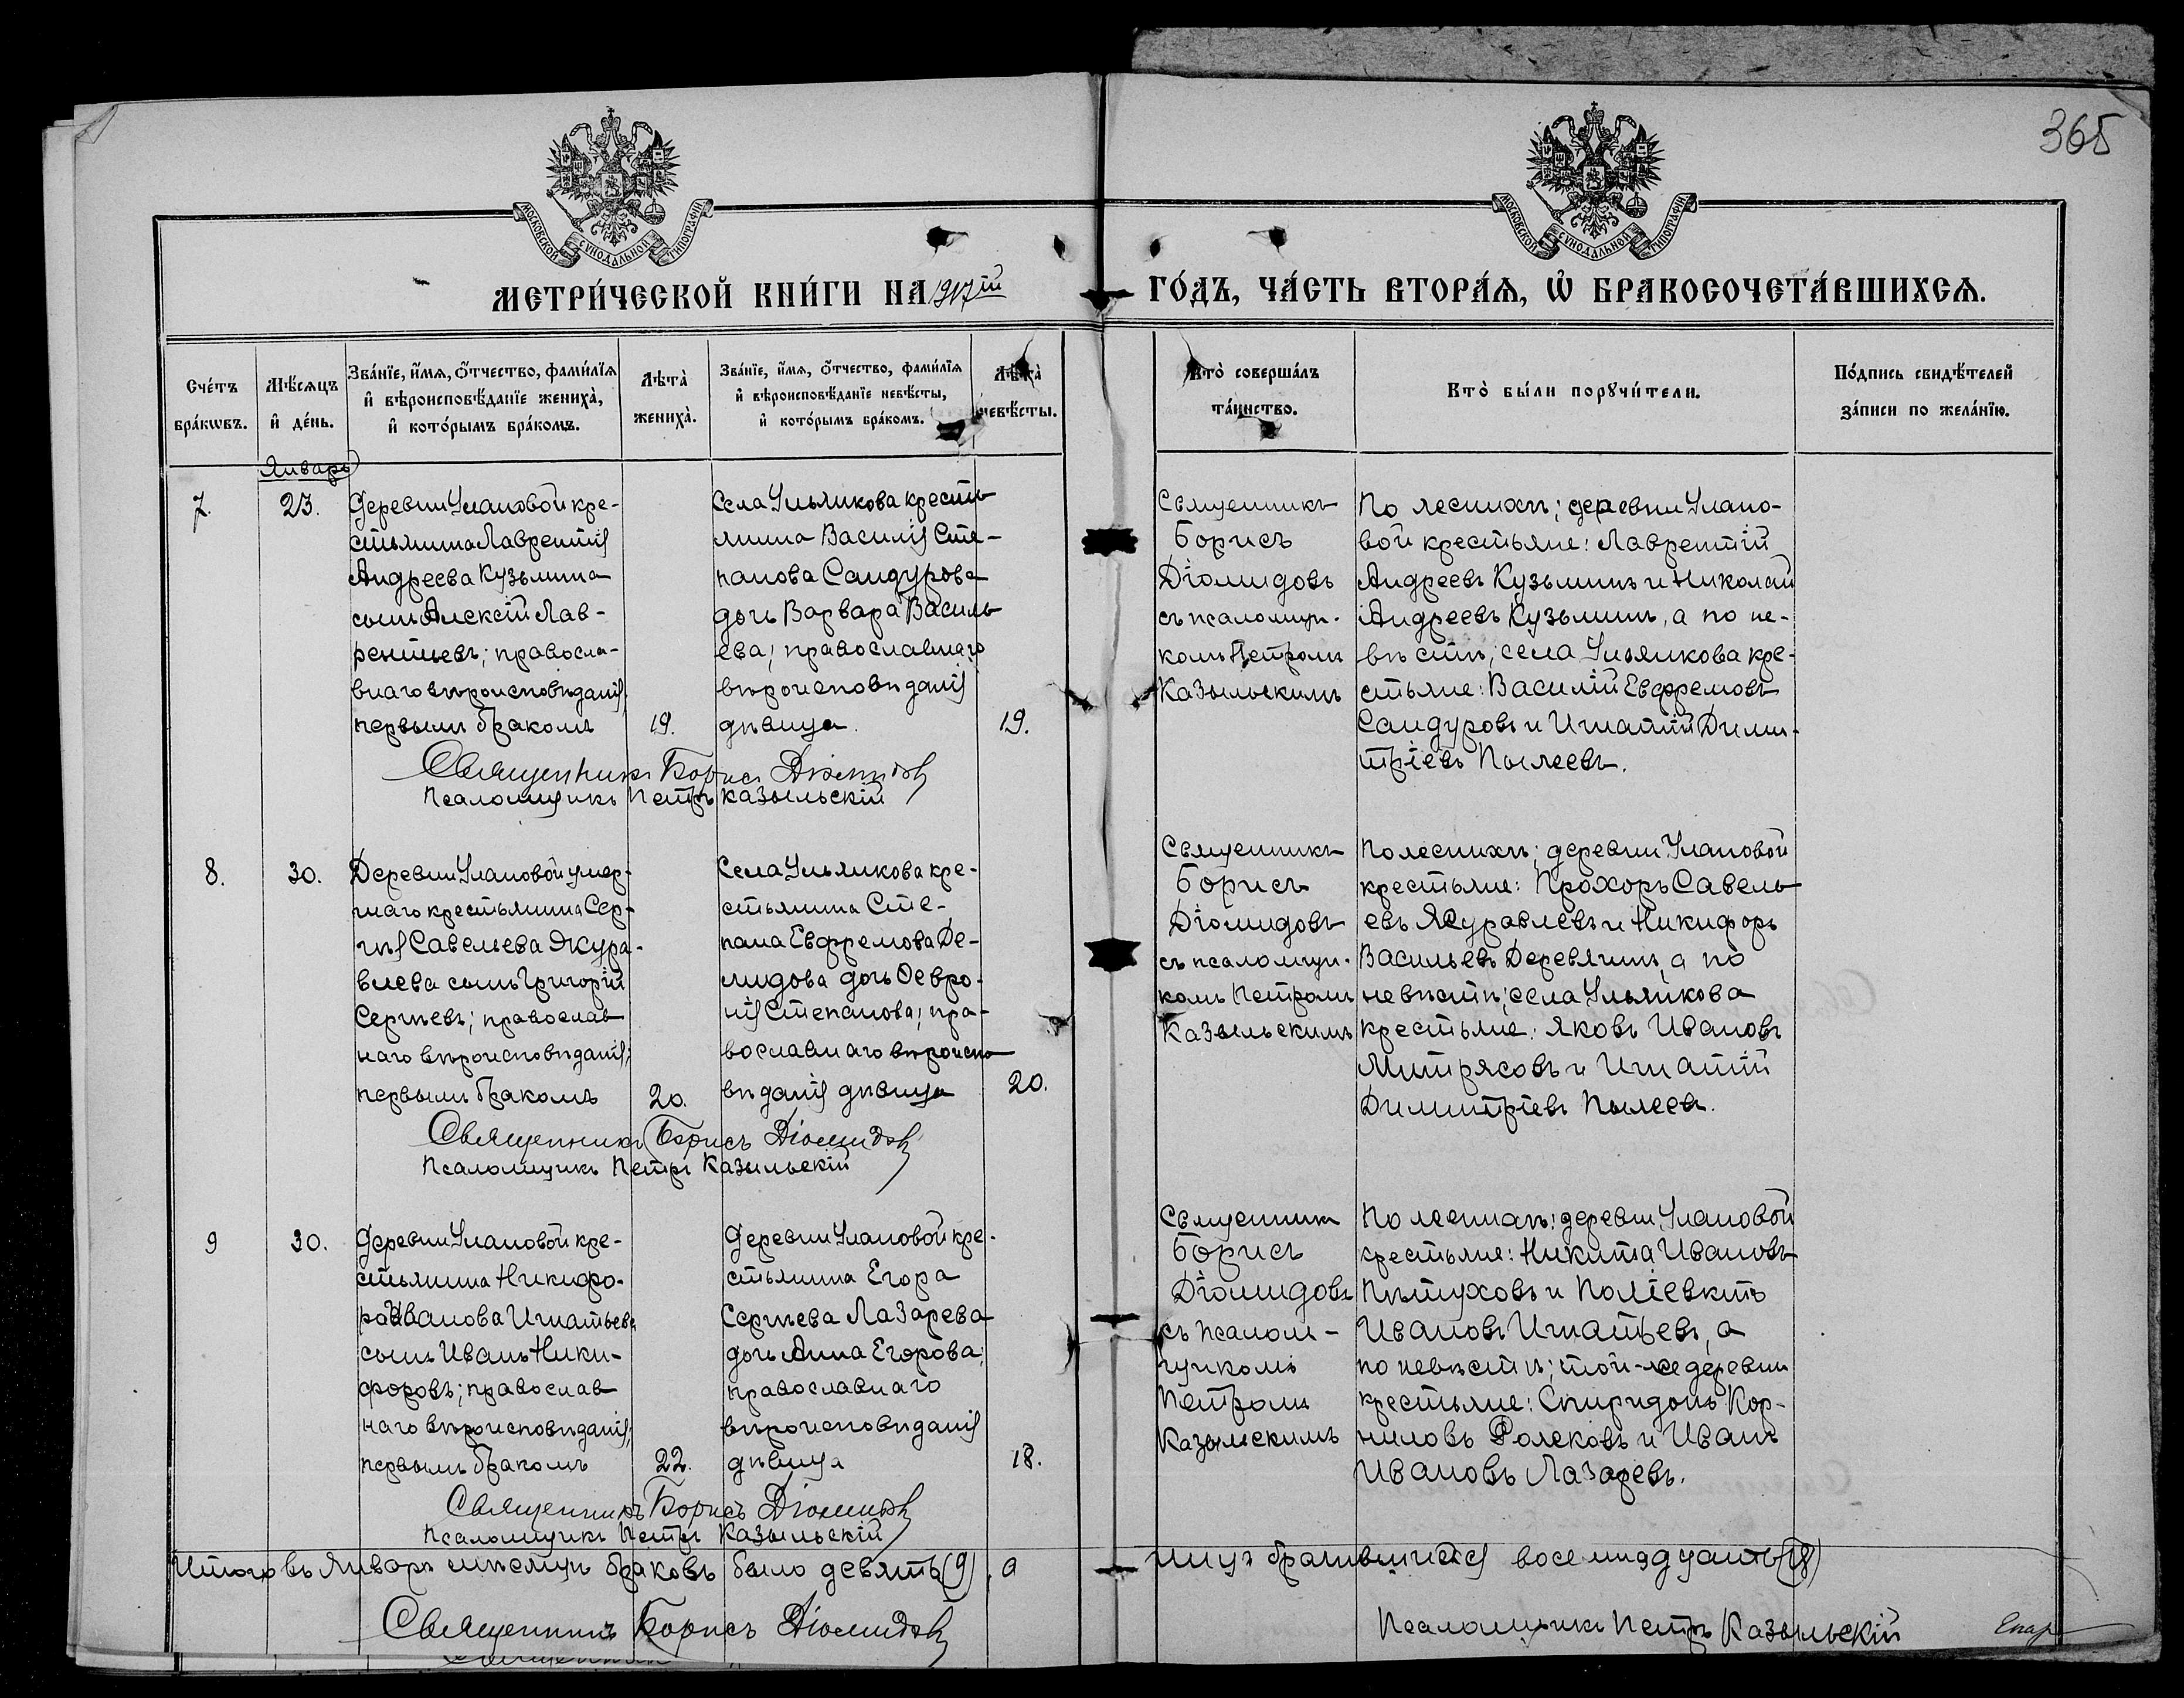 365
МОСКОВСКОЙ СѴНОДАЛЬНОЙ ТИПОГРАФІИ
МОСКОВСКОЙ СѴНОДАЛЬНОЙ ТИПОГРАФІИ
МЕТРИ́ЧЕСКОЙ КНИ́ГИ НА 1917ій
ГО́ДЪ, ЧА́СТЬ ВТОРА́Ѧ, Ѽ БРАКОСОЧЕТА́ВШИХСѦ.
Сче́тъ
бра́кѡвъ.
Мѣ́сяцъ
и҆ де́нь.
Зва́нїе, и҆́мѧ, о҆́тчество, фами́лїѧ
и҆ вѣроисповѣ́данїе жениха̀,
и҆ кото́рымъ бра́комъ.
Лѣта̀
жениха̀.
Зва́нїе, и҆́мѧ, о҆́тчество, фами́лїѧ
и҆ вѣроисповѣ́данїе невѣ́сты,
и҆ кото́рымъ бра́комъ.
Лѣта̀
невѣ́сты.
Кто̀ соверша́лъ
та́инство.
Кто̀ бы́ли порꙋчи́тели.
По́дпись свидѣ́телей
за́писи по жела́нїю.
Январь
7.
23.
Деревни Улановой кре-
стьянина Лаврентія
Андреева Кузьмина
сынъ Алексій Лав-
рентьевъ; правосла-
внаго вѣроисповѣданія,
первымъ бракомъ
19.
Села Ульянкова кресть
янина Василія Сте-
панова Сандурова
дочь Варвара Василь
ева; православнаго
вѣроисповѣданія
дѣвица.
19.
Священникъ
Борисъ
Діомидовъ
съ псаломщи-
комъ Петромъ
Казыльскимъ
По женихѣ; деревни Улано-
вой крестьяне: Лаврентій
Андреевъ Кузьминъ и Николай
Андреевъ Кузьминъ, а по не-
вѣстѣ; села Ульянкова кре-
стьяне: Василій Евфремовъ
Сандуровъ и Игнатій Дими-
тріевъ Пылеевъ.
Священникъ Борисъ Діомидовъ
Псаломщикъ Петръ Казыльскій
8.
30.
Деревни Улановой умер-
шаго крестьянина Сер-
гѣя Савельева Жура-
влева сынъ Григорій
Сергѣевъ; православ
наго вѣроисповѣданія;
первымъ бракомъ
20.
Села Ульянкова кре-
стьянина Сте-
пана Евфремова Де-
мидова дочь Февро-
нія Степанова; пра-
вославнаго вѣроиспо
вѣданія дѣвица
20.
Священникъ
Борисъ
Діомидовъ
съ псаломщи-
комъ Петромъ
Казыльскимъ
По женихѣ; деревни Улановой
крестьяне: Прохоръ Савель
евъ Журавлевъ и Никифоръ
Васильевъ Деревягинъ, а по
невѣстѣ; села Ульянкова
крестьяне: Яковъ Ивановъ
Митрясовъ и Игнатій
Димитріевъ Пылеевъ.
Священникъ Борисъ Діомидовъ
Псаломщикъ Петръ Казыльскій
9
30.
Деревни Улановой кре-
стьянина Никифо-
ра Иванова Игнатьева
сынъ Иванъ Ники-
форовъ; православ
наго вѣроисповѣданія,
первымъ бракомъ
22.
Деревни Улановой кре-
стьянина Егора
Сергѣева Лазарева
дочь Анна Егорова;
православнаго
вѣроисповѣданія
дѣвица
18.
Священникъ
Борисъ
Діомидовъ
съ псалом-
щикомъ
Петромъ
Казыльскимъ
По женихѣ; деревни Улановой
крестьяне: Никита Ивановъ
Пѣтуховъ и Поліевктъ
Ивановъ Игнатьевъ, а
по невѣстѣ; той-же деревни
крестьяне: Спиридонъ Кор-
ниловъ и Иванъ
Ивановъ Лазаревъ.
Священникъ Борисъ Діомидовъ
Псаломщикъ Петръ Казыльскій
Итого въ Январѣ мѣсяцѣ браковъ было девять (9), а
лицъ брачившихся восемнадцать (18)
Священникъ Борисъ Діомидовъ
Псаломщикъ Петръ Казыльскій
Епар